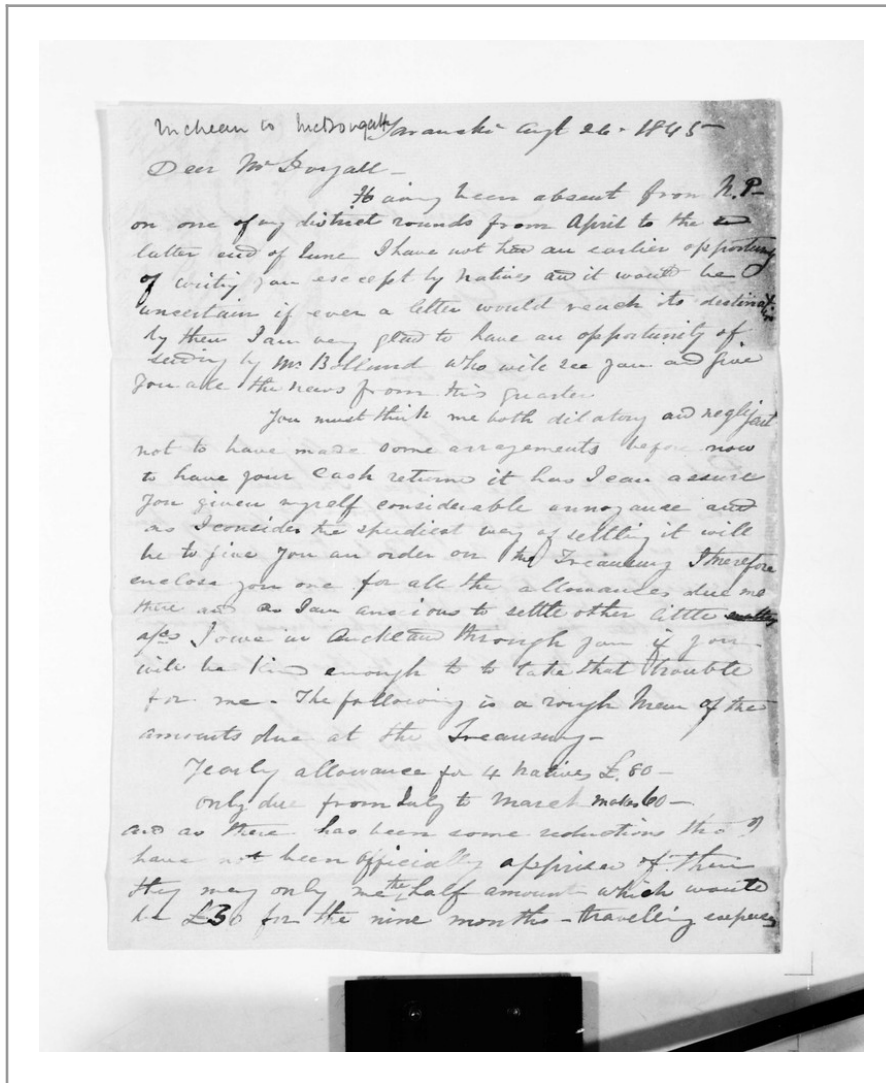 McLean to McDougall Taranaki Augt 26. 1845
Dear McDougall -
Having been absent from N.P-
on one of my district rounds from April to the
latter end of June I have not had an earlier opportuny
of writing you except by natives and it would be
uncertain if ever a letter would reach its destination
by them I am very glad to have an opportunity of
sending by Mr. Bolland who will see you and give
you all the news from this quarter
You must think me both dilatory and negligent
not to have made some arragements before now
to have your Cash returned it has I can assure
you given myself considerable annoyance and
as I consider the speediest way of settling it will
be to give you an order on the Treausury I therefore
enclose you one for all the allowances due me
there and as I am anxious to settle other little
a/cs I owe in Auckland through you if you
will be kind enough to to take that trouble
for me - The following is a rough Mem of the
amounts due at the Treausury -
Yearly allowance for 4 natives £.80 -
only due from July to March makes 60 -
and as there has been some reductions tho' I
have not been officially apprised of them
they may only me the half amount which would
be £30 for the nine months - travelling expenses